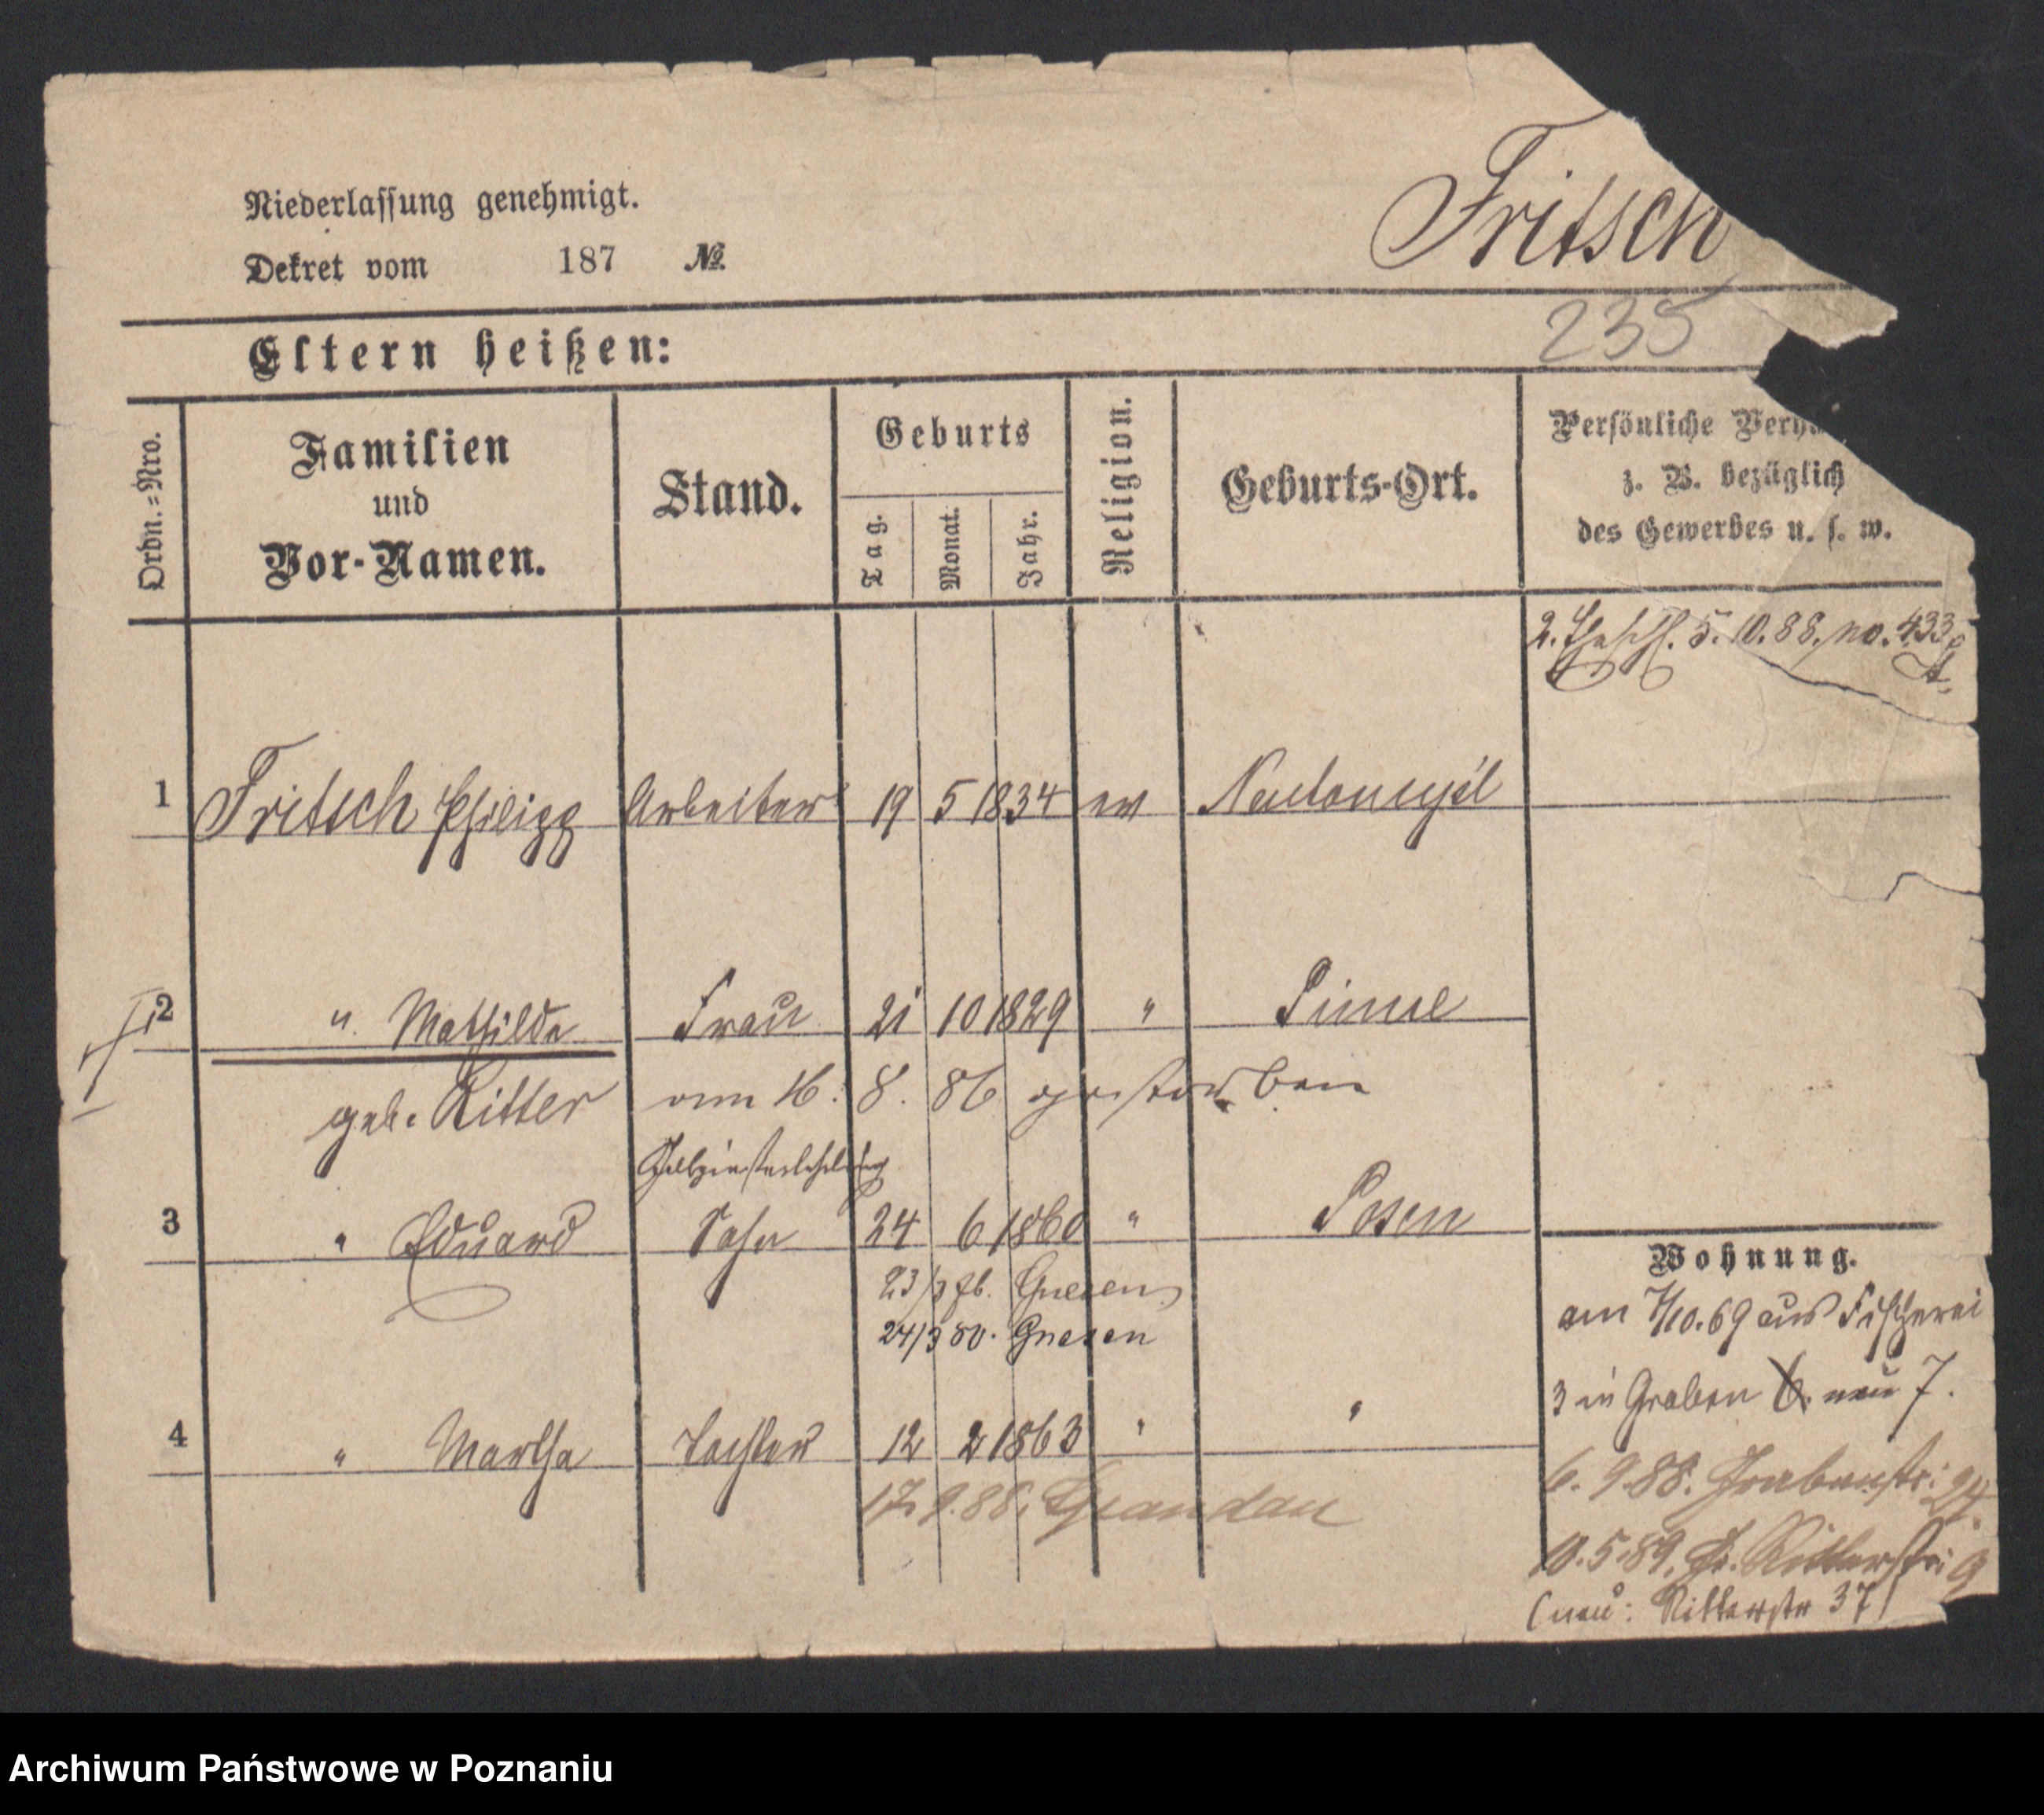 Niederlassung genehmigt.
Dekret vom 187 №
Fritsch
235
Eltern heißen:
Ordn.=Nro.
Familien
und
Vor-Namen.
Stand.
Geburts
Tag.
Monat.
Jahr.
Religion.
Geburts-Ort.
Persönliche Verhä
z. B. bezüglich
des Gewerbes u. s. w.
2. 5. 10. 88. no. 433
1 Fritsch Philipp Arbeiter 19 5 1834 ev Neutomysl
2 " Mathilde Frau 21 10 1829 " Pinne
geb. Ritter am 16. 8. 86 gestorben
3 " Eduard Sohn 24 6 1860 " Posen
23/3 Gnesen
24/3 80. Gnesen
4 " Martha Tochter 12 2 1863 " "
17. 9. 88.
Wohnung.
am 7/10. 69 aus Fischerei
3 in Graben 6. neu 7.
6. 9. 88. Grabenstr: 24.
10. 5. 89. Gr. Ritterstr: 9
(neu: Ritterstr 37)
Archiwum Państwowe w Poznaniu